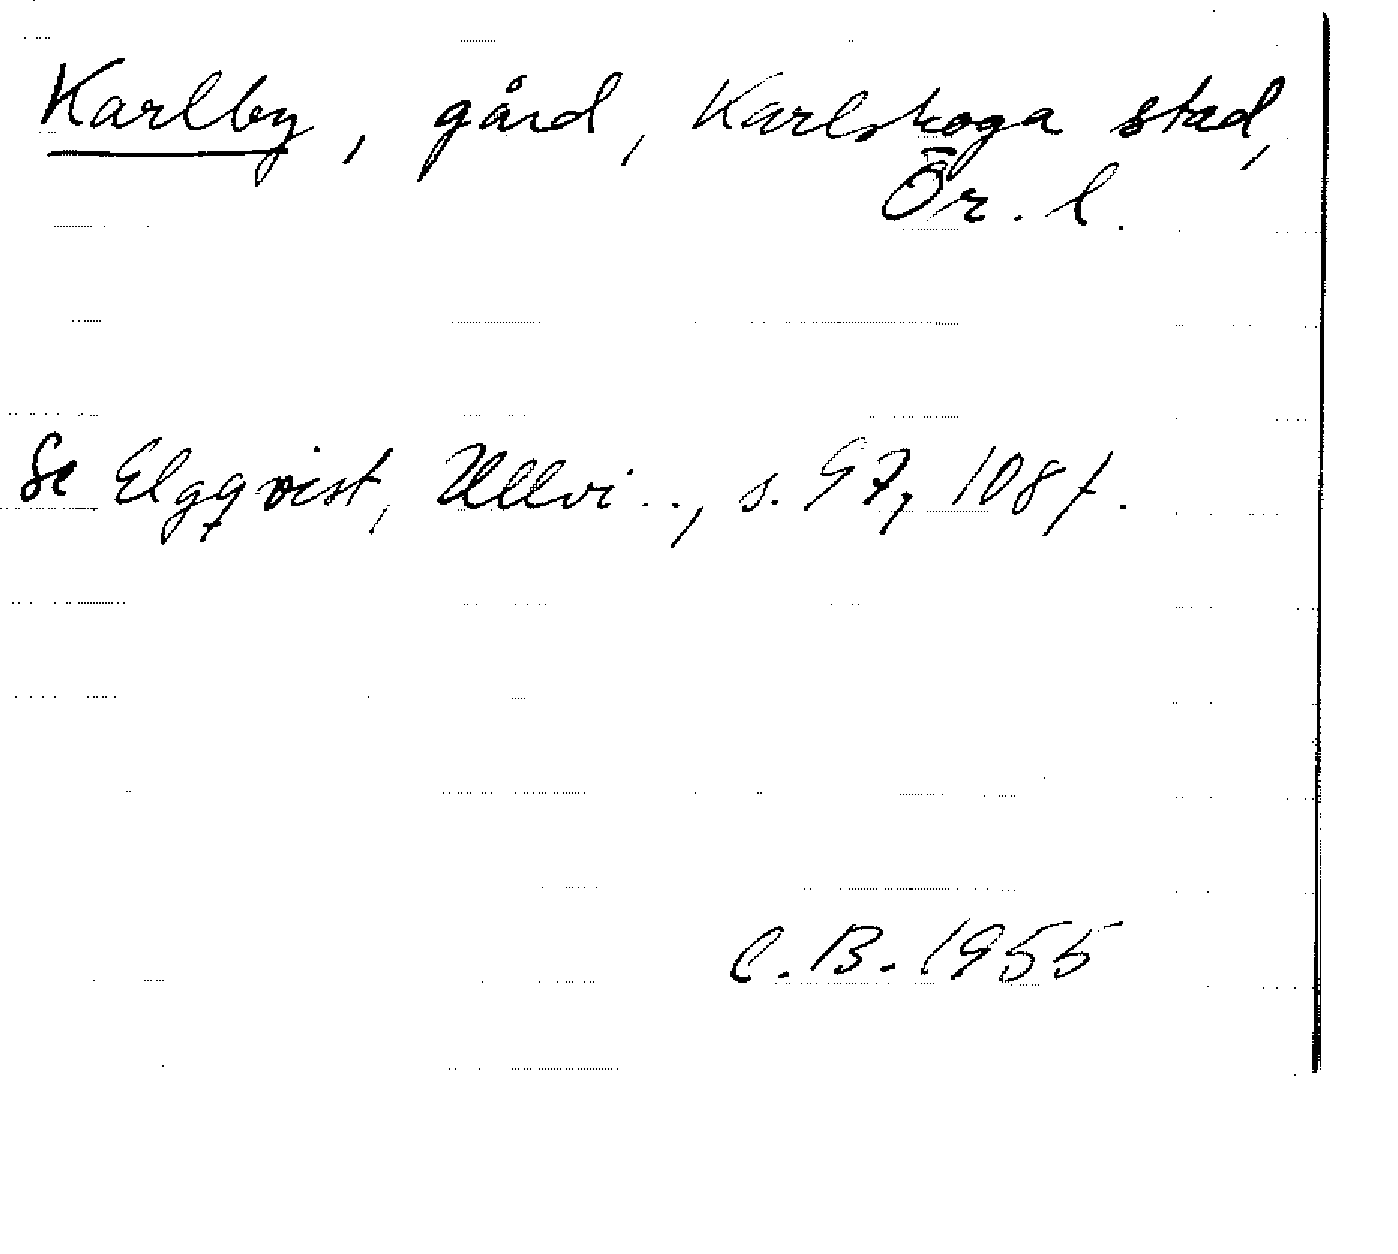 Karlby, gård, Karlskoga stad,
Ör. l.
Se Elgqvist, Ullvi.., s. 97, 108 f.
C. B. 1955